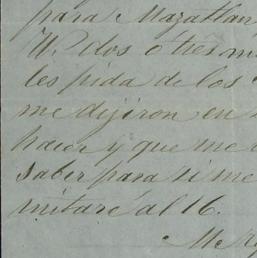 para Mazatlan
U. dos ó tres m
les pida de los
me dijiron en
hacer y que me
saber para si me
mitaré al 16.